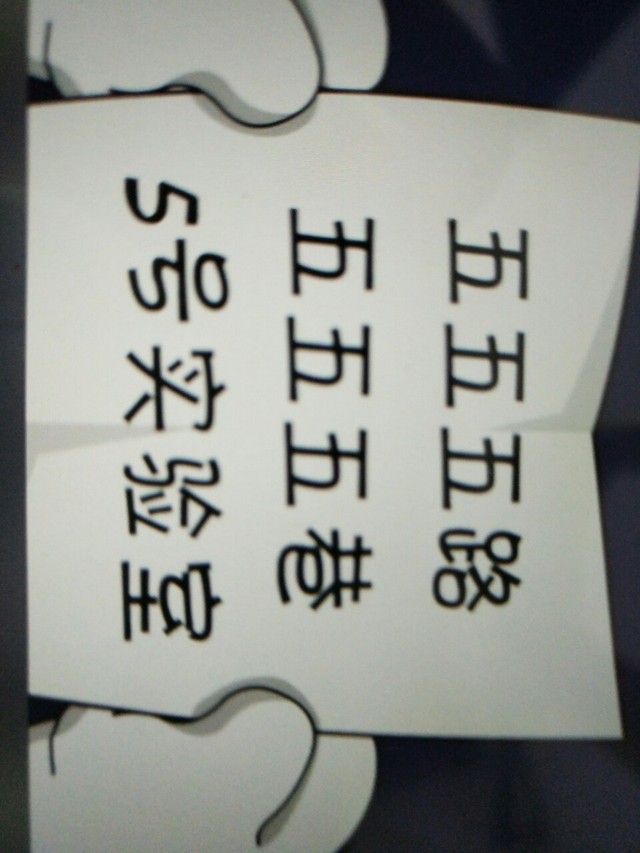 五五五路
五五五巷
5号实验室